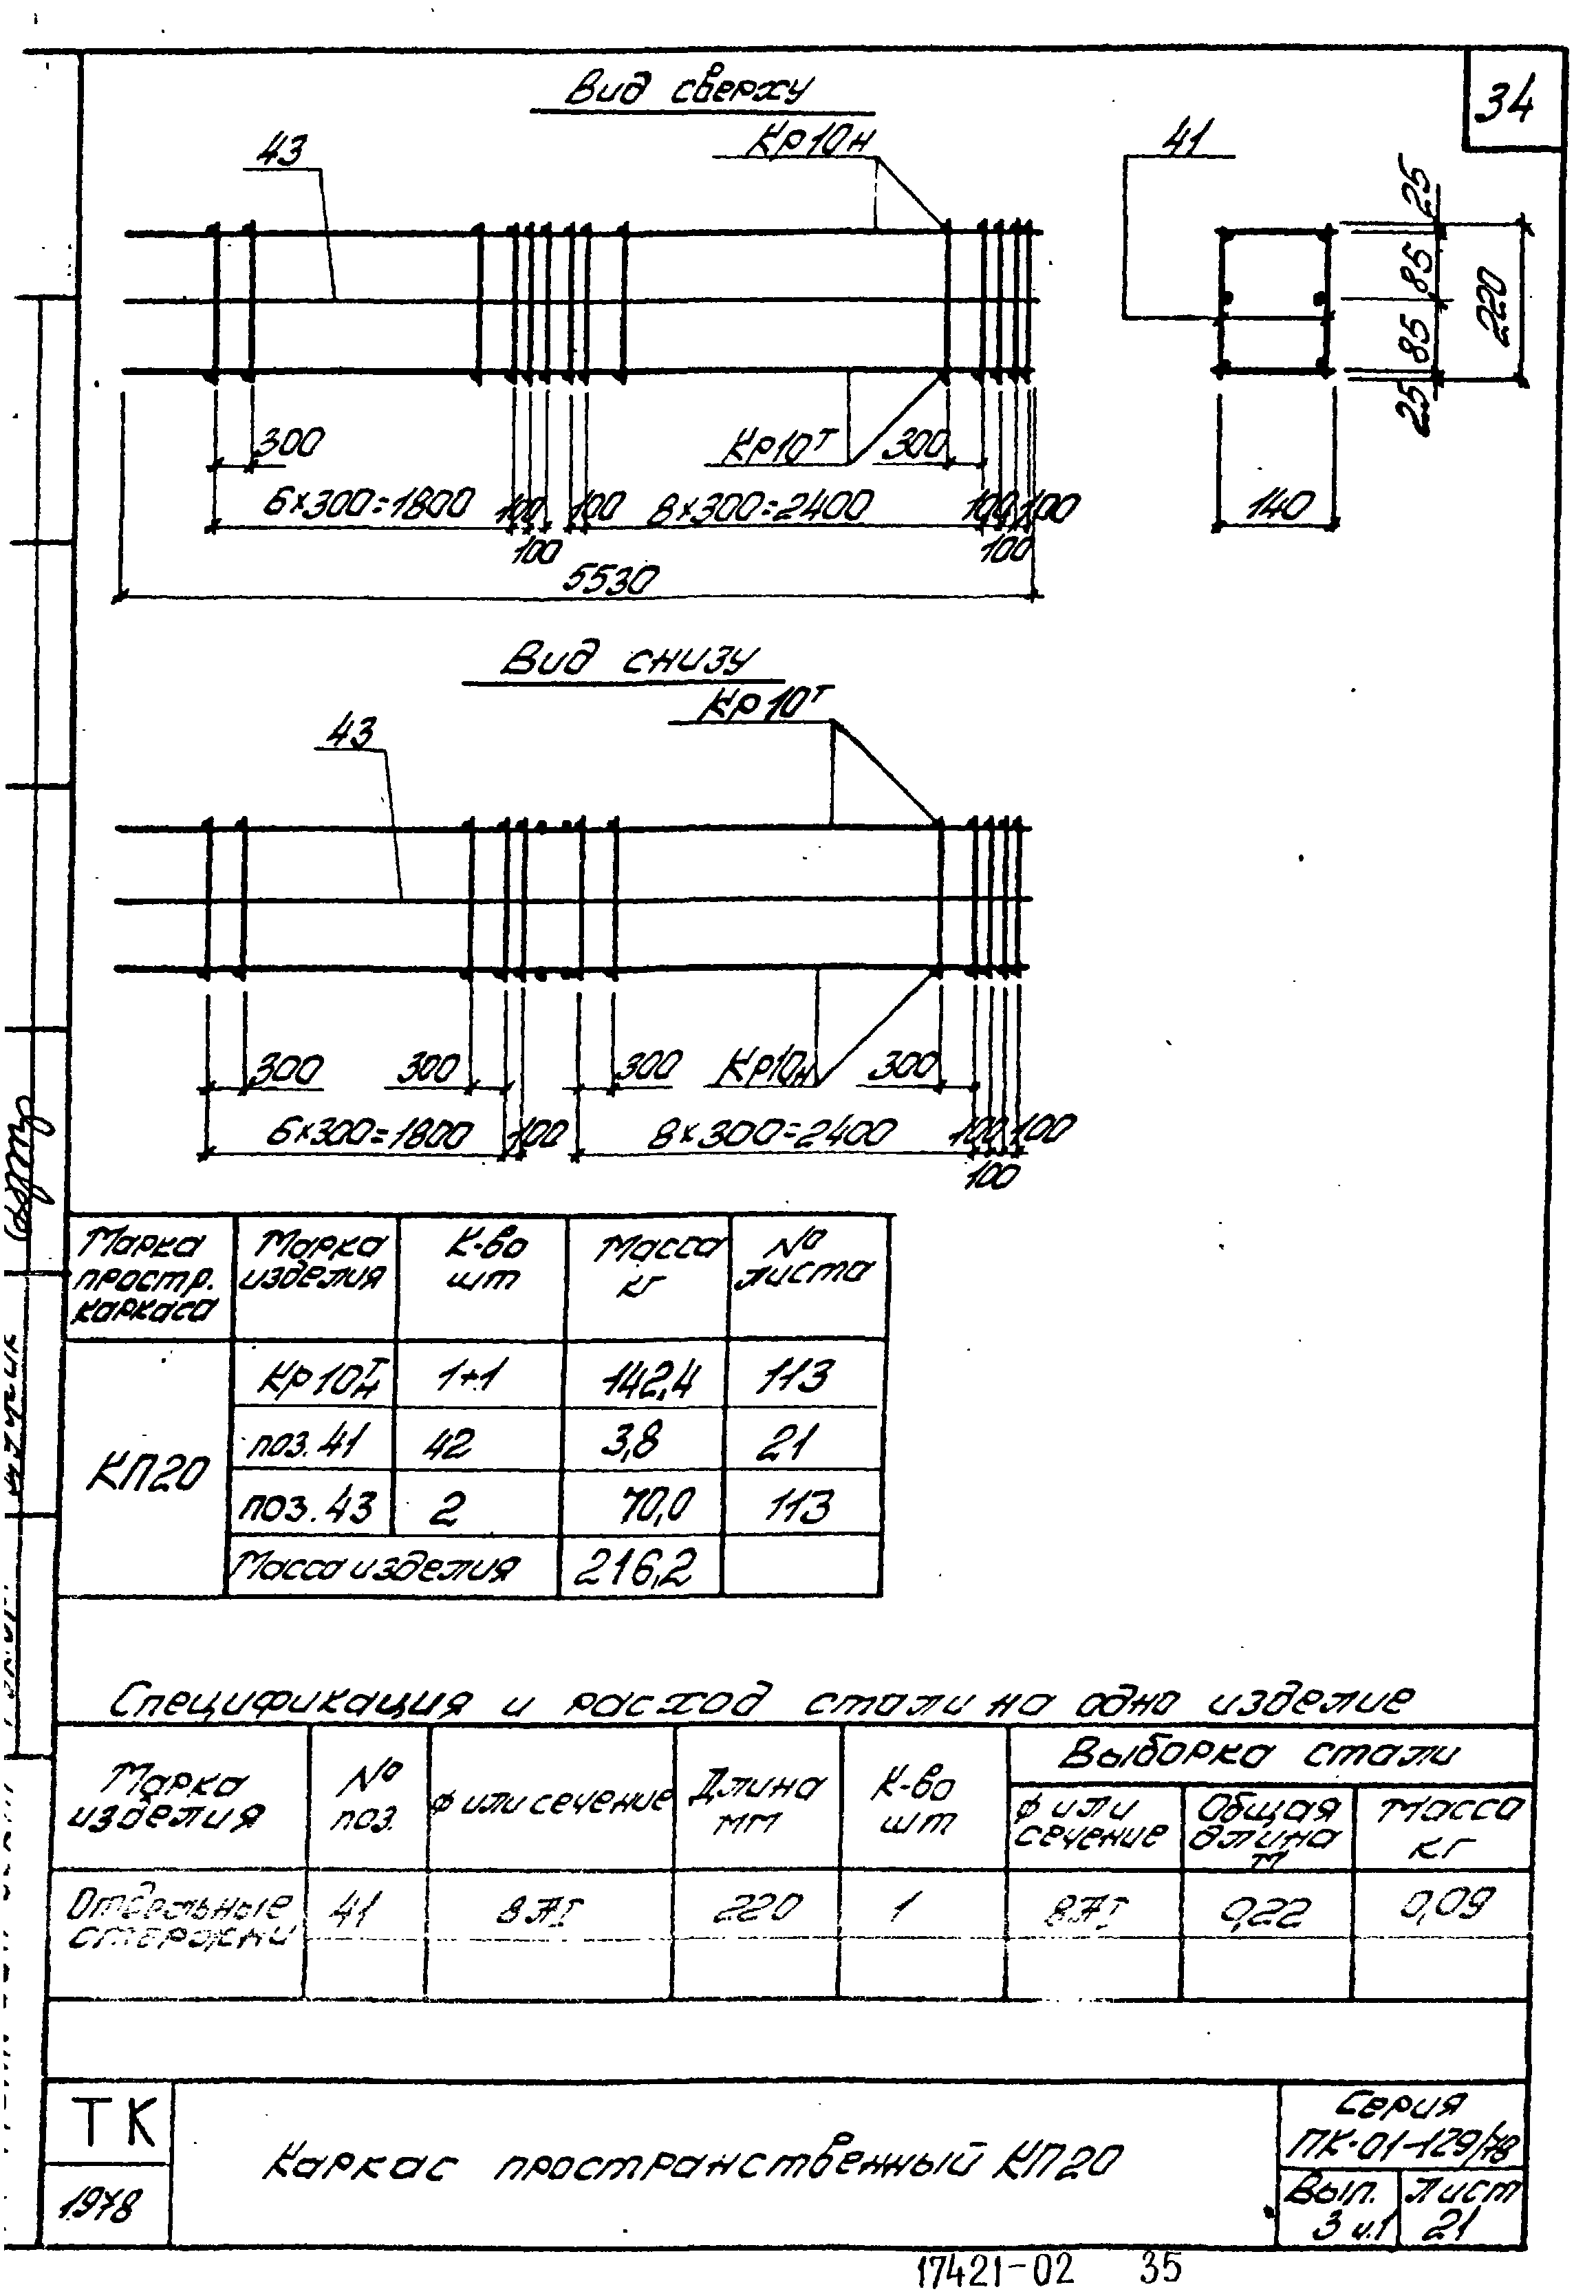 34
Вид сверху
43
Кр10н
41
25
85
85
25
220
300
Кр10т
300
6×300=1800
100
100
8×300=2400
100
100
140
100
100
5530
Вид снизу
Кр10т
43
300
300
300
Кр10н
300
6×300=1800
100
8×300=2400
100
100
100
Марка простр. каркаса
Марка изделия
К-во шт
Масса кг
№ листа
КП20
Кр10т/н 1+1 142,4 113
поз.41 42 3,8 21
поз.43 2 70,0 113
Масса изделия 216,2
Спецификация и расход стали на одно изделие
Марка изделия
№ поз.
ф или сечение
Длина мм
К-во шт
Выборка стали
ф или сечение
Общая длина м
Масса кг
Отдельные стержни
41 8АI 220 1 8АI 0,22 0,09
ТК
1978
Каркас пространственный КП20
Серия
ПК-01-129/78
Вып.
3 ч.1
Лист
21
17421-02 35